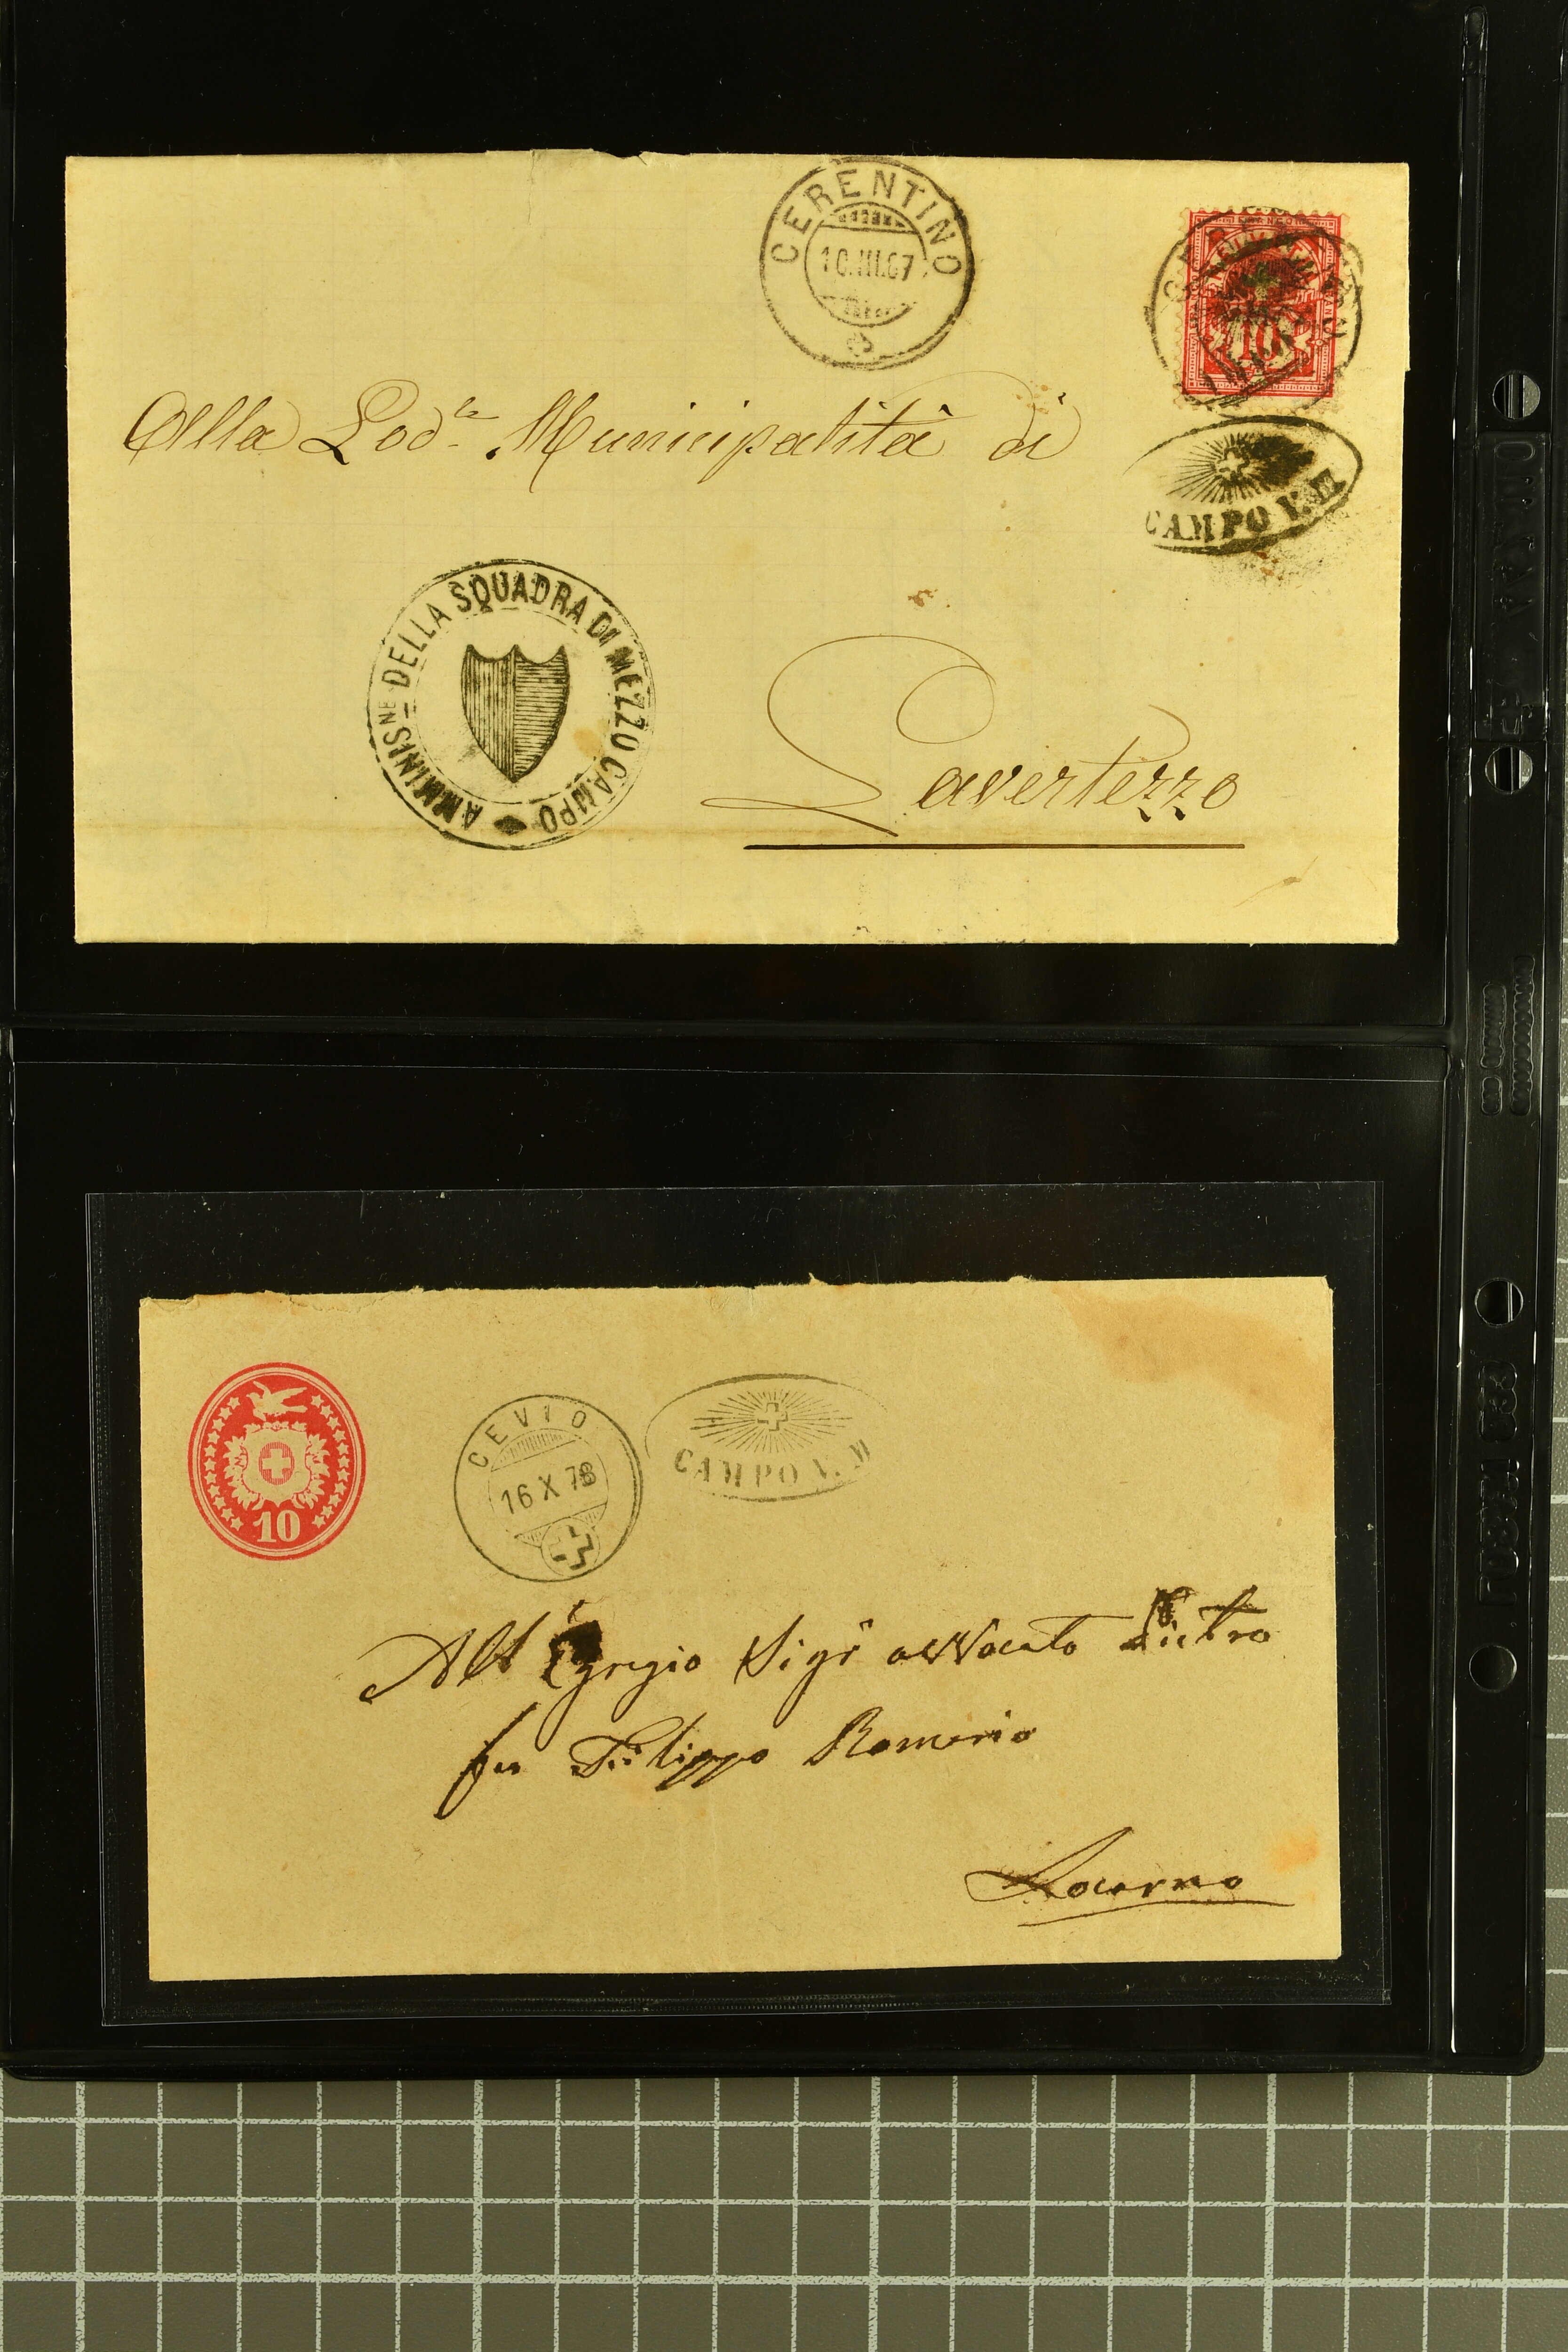 CERENTINO
10.III.07
FRANCO
10
Alla Lod.le Municipalità di
CAMPO V. M
AMMINIS.NE DELLA SQUADRA DI MEZZO CAMPO
Lavertezzo
10
CEVIO
16 X 78
CAMPO V. M
All' Egregio Sigr avvocato Pietro
fu Filippo Romerio
Locarno